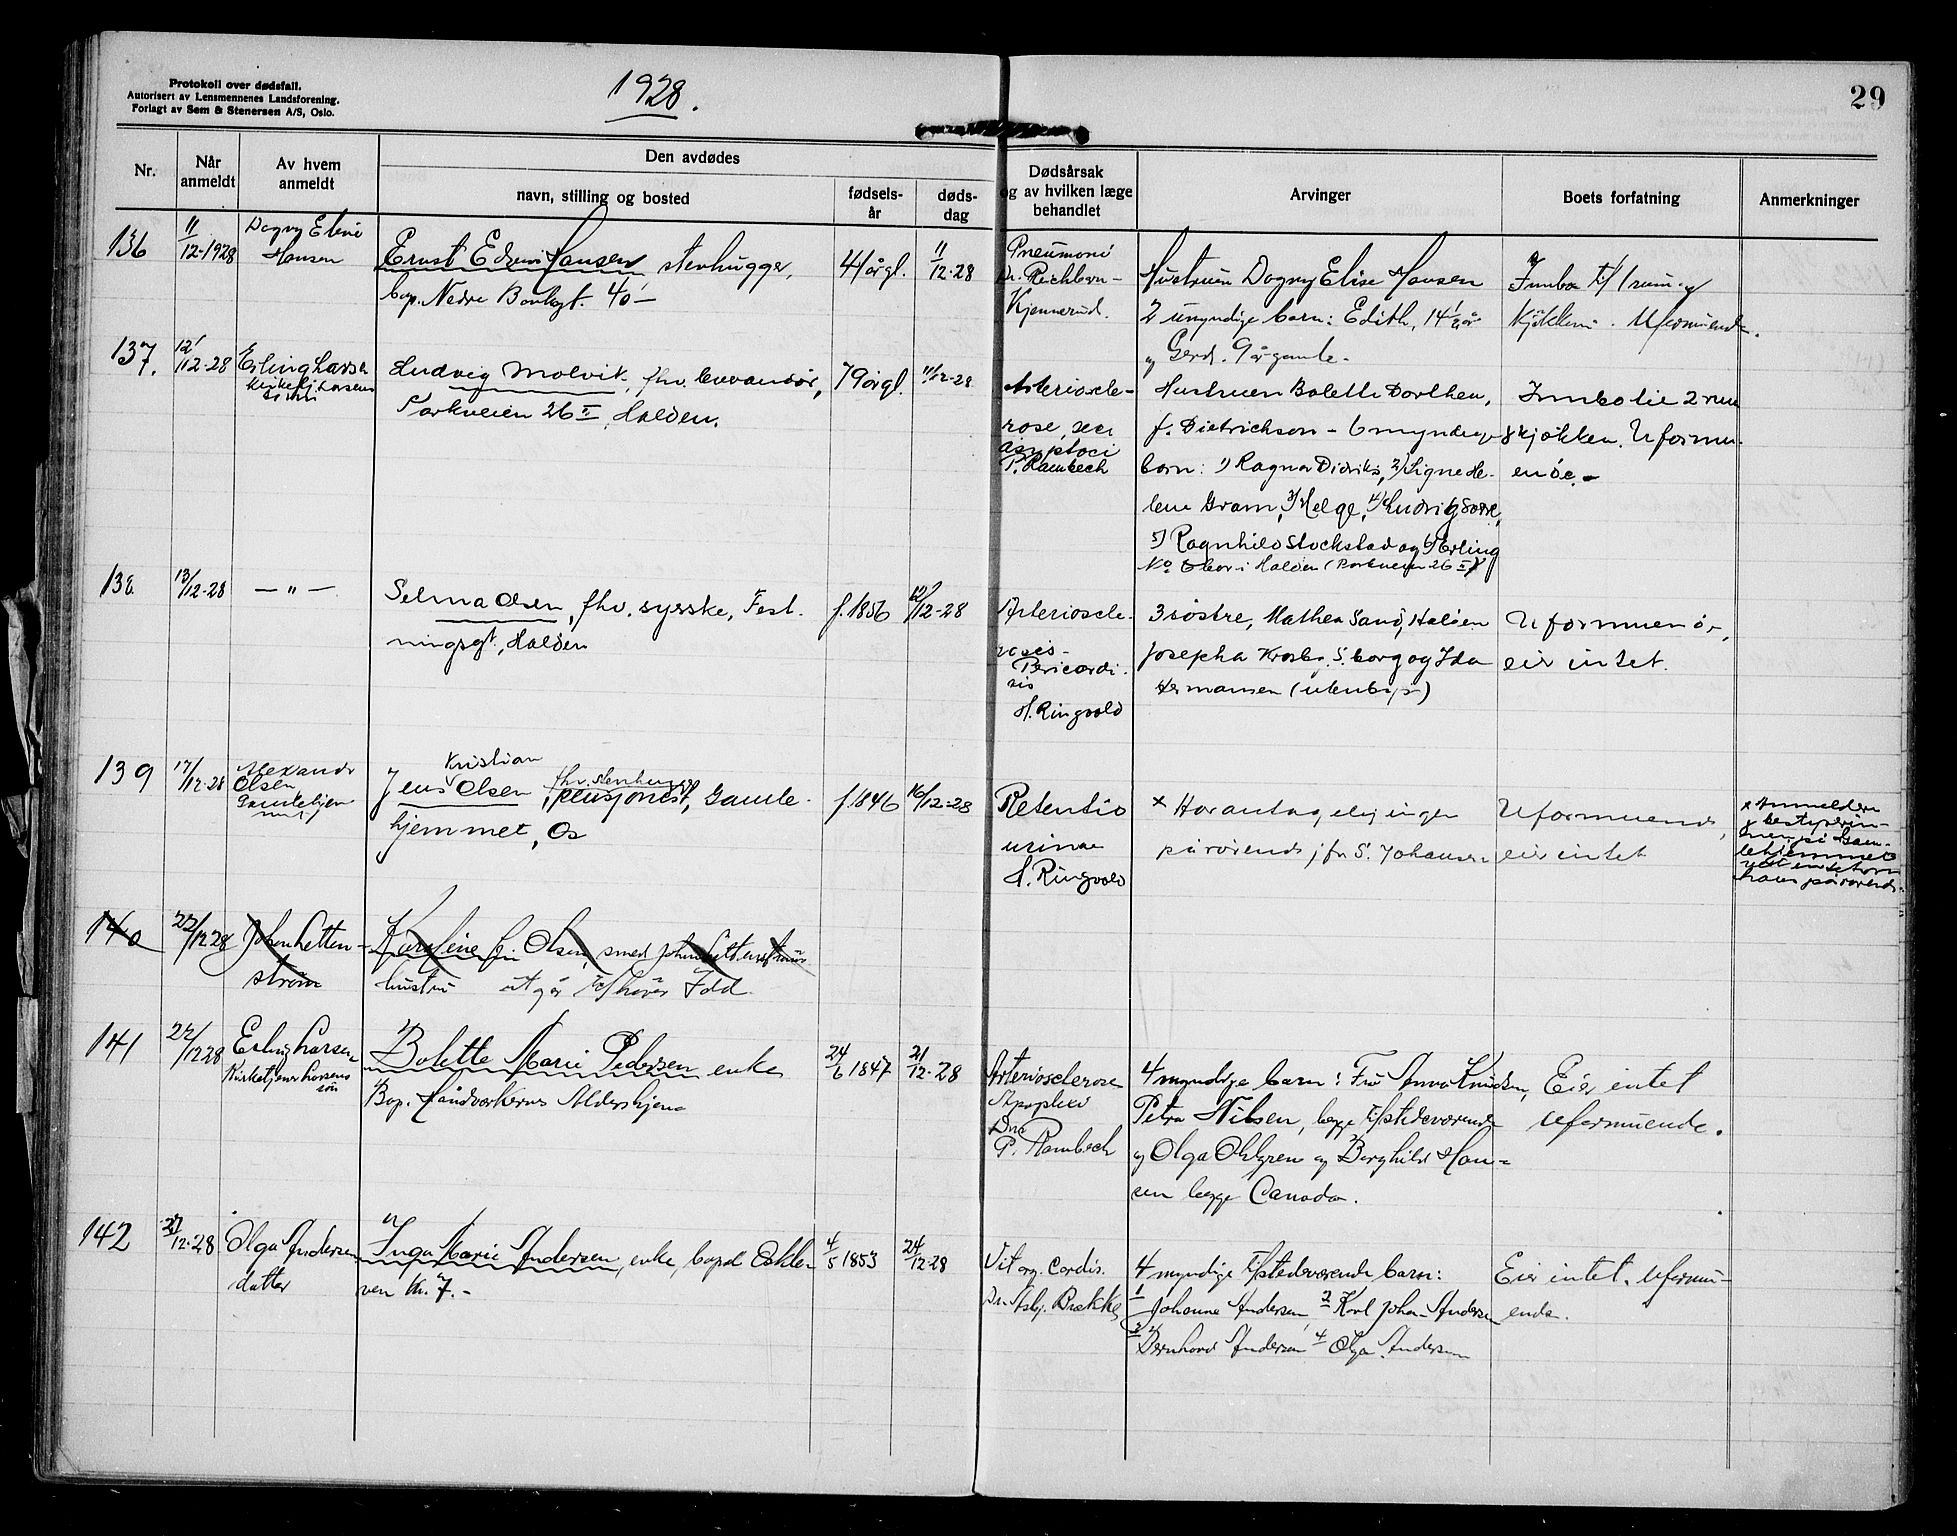 Protokoll over dødsfall.
Autorisert av Lensmennenes Landsforening.
Forlagt av Sem & Stenersen A/S, Oslo.
1928.
29
Nr.
Når
anmeldt
Av hvem
anmeldt
Den avdødes
navn, stilling og bosted
fødsels-
år
døds-
dag
Dødsårsak
og av hvilken læge
behandlet
Arvinger
Boets forfatning
Anmerkninger
136
11/12-1928
Dagny Elise
Hansen
Ernst Edvin Hansen, stenhugger,
bop. Nedre Bankgt. 40 –
41 årgl.
11/12-28
Pneumoni
Dr. Reichborn-
Kjennerud.
Hustruen Dagny Elise Hansen
2 umyndige barn: Edith, 14 1/2 år
og Gerd. 9 år gamle.
Innbo til 1 rum og
kjøkken. Uformuende.
137.
12/12-28
Erling Larsen
kirketj. Larsens
sønn
Ludvig Molvik, fhv. leverandør,
Parkveien 26 II, Halden.
79 årgl.
11/12-28
Arteriosclerose,
P. Rambech
Hustruen Bolette Dorthea,
f. Dietrichson – 6 myndige
barn: 1) Ragnar Didriks, 2) Signe He-
lene Gram, 3) Helge, 4) Ludvig Sverre,
5) Ragnhild Stockstad og 6) Erling
No 6 bor i Halden (Parkveien 26 II)
Innbo til 2 rum
og kjøkken. Uformu-
ende. –
138
13/12-28
– " –
Selma Olsen, fhv. syerske, Fest-
ningsgt., Halden
f. 1856
12/12-28
Arterioscle-
rosis-
Pericardi-
H. Ringvold
3 søstre, Mathea Sand, Halden
Josepha Krosby, S.borg og Ida
Hermansen (utenbys)
Uformuende,
eier intet.
139
17/12-28
Olsen
Gamlehjem-
met
Jens Kristian Olsen, fhv. stenhugger, pensjonist, Gamle-
hjemmet, Os
f. 1846
16/12-28
Retentio
urinae
H. Ringvold
x Har antagelig ingen
pårørende jfr S. Johansen
Uformuende,
eier intet
x Anmelderen
bestyrerin-
nen på Gam-
lehjemmet
hans pårørende.
140
22/12 28
Johan Letten-
strøm
Karoline f. Olsen, smed Johan Lettenstrøms
hustru utgår tilhører Idd
141
22/12 28
Erling Larsen
Kirketjener Larsens
sønn
Bolette Marie Pedersen enke
Bop. Håndverkernes Aldershjem
24/6 1847
21/12-28
Arteriosclerose
Apoplexi
Dr.
P. Rambech
4 myndige barn: Fru Anna Knudsen,
Petra Nilsen, begge tilstedeværende
og Olga Ohlgren og Borghild Han-
sen begge Canada.
Eier intet
uformuende.
142
27/12-28
Olga Andersen
datter
Inga Marie Andersen, enke, bopæl Oskle-
ven Nr. 7. –
4/5 1853
24/12-28
Vit. org. cordis.
Dr. Asbj. Brekke,
4 myndige tilstedeværende barn:
1 Johanne Andersen, 2 Karl Johan Andersen
3 Bernhard Andersen 4 Olga Andersen
Eier intet. Uformu-
ende.